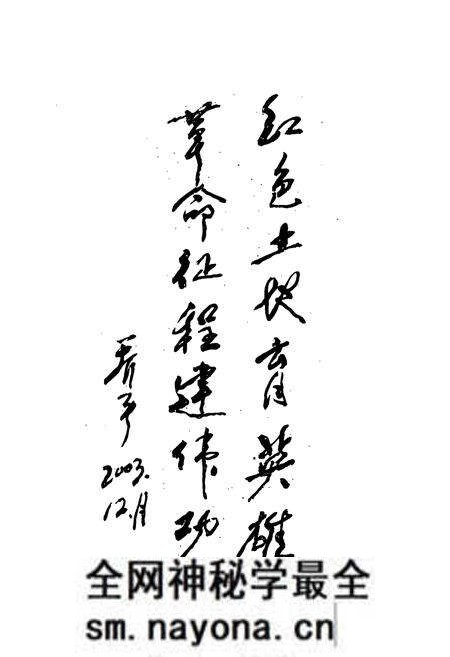 红色土地育英雄
革命征程建伟功
2003.
12.月
全网神秘学最全
sm.nayona.cn